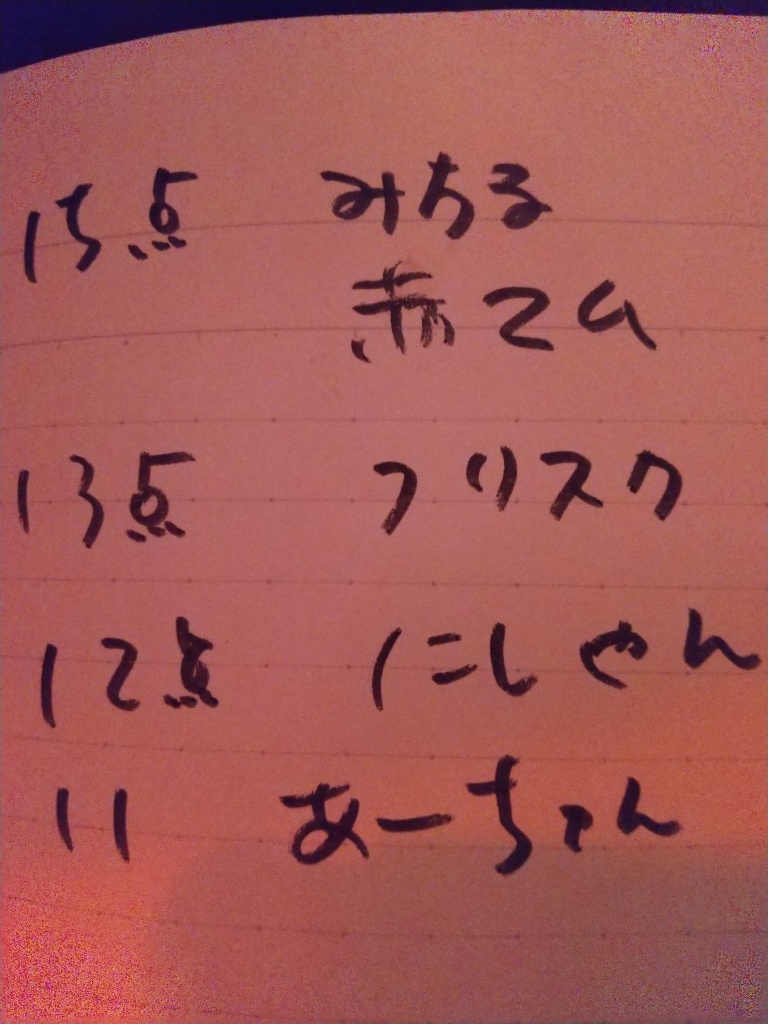 15点 みちる
赤マム
13点 フリスク
12点 にしやん
11 あーちゃん